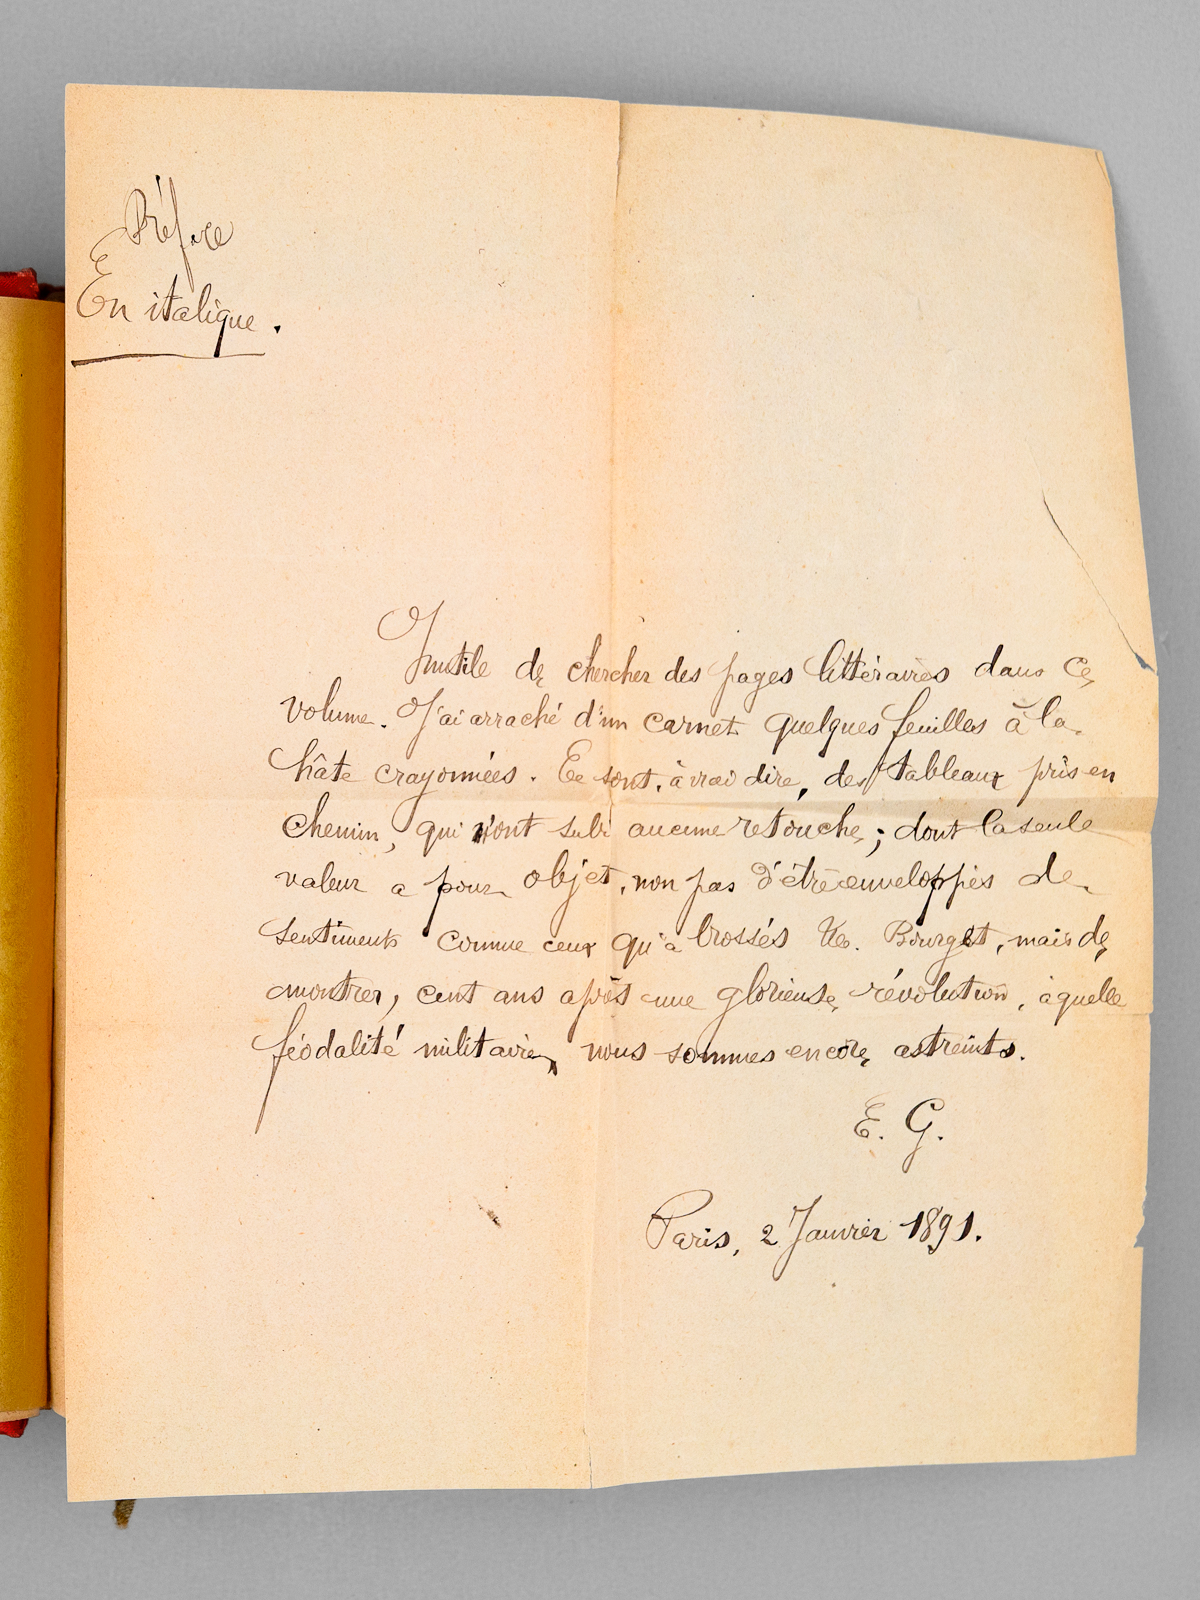 Préface
En italique.
Inutile de chercher des pages littéraires dans ce
volume. J'ai arraché d'un carnet quelques feuilles à la
hâte crayonnées. Ce sont, à vrai dire, des tableaux pris en
chemin, qui n'ont subi aucune retouche; dont la seule
valeur a pour objet, non pas d'être enveloppés de
sentiments comme ceux qu'a brossés Bourget, mais de
montrer, cent ans après une glorieuse révolution, à quelle
féodalité militaire, nous sommes encore astreints.
E. G.
Paris, 2 Janvier 1891.